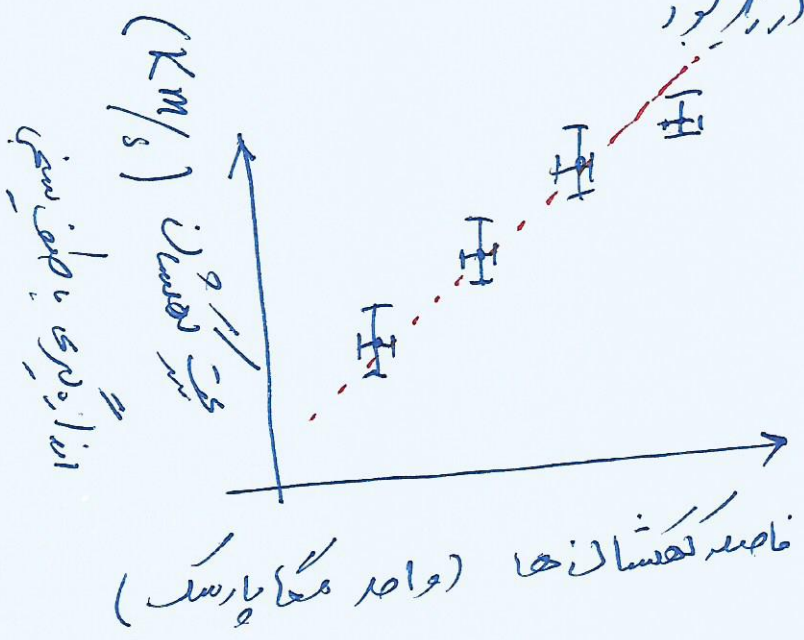 (Km/s) سرعت کهکشان
اندازه‌گیری با طیف سنجی
فاصله کهکشان‌ها (واحد مگا پارسک)